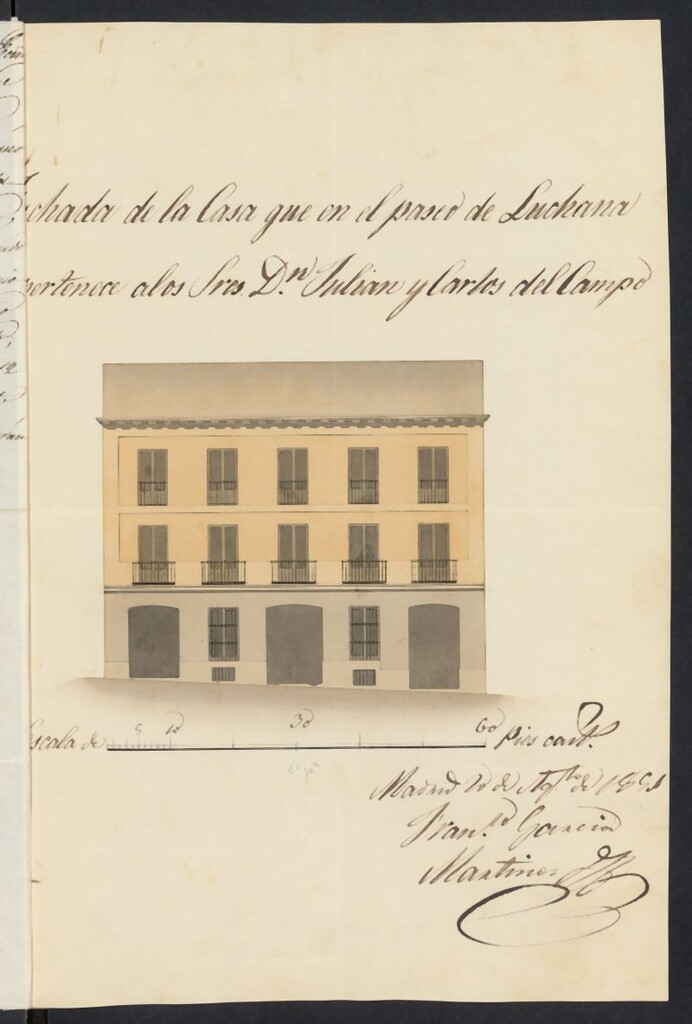 chada de la Casa que en el paseo de Luchana
pertenece alos Sres. D.n Julian y Carlos del Campo
Escala de 5 10 30 60 Pies cast.s
Madrid 20 de Ag.to de
Fran.co Garcia
Martinez